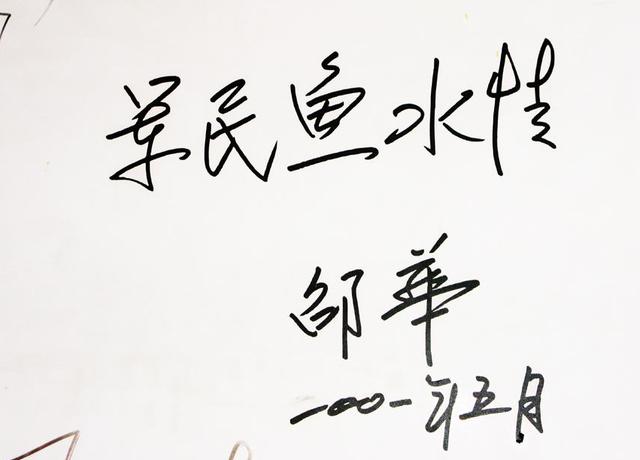 军民鱼水情
邵华
二〇〇一年五月